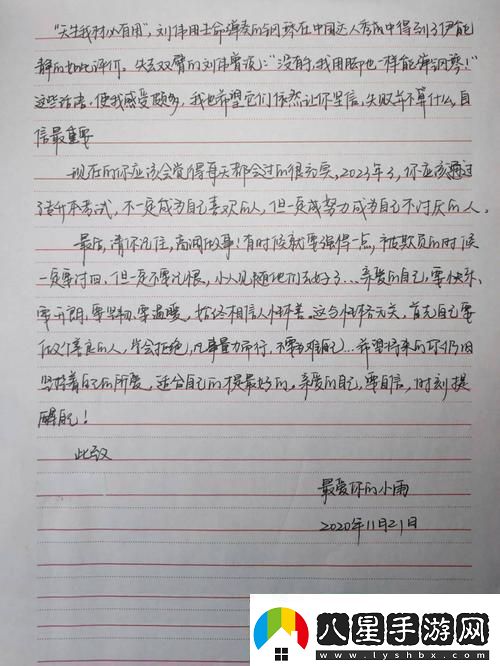 "天生我材必有用",刘伟用生命弹奏的钢琴在中国达人秀成中得到了伊能
静的如此评价。失去双臂的刘伟曾说:"没有手,我用脚也一样能弹钢琴!"
这些话语,使我感受颇多,我也希望它们依然让你坚信,失败并不算什么,自
信最重要
现在的你应该会觉得每天都会过的很充实,2023年了,你应该通过
专升本考试,不一定成为自己喜欢的人,但一定成努力成为自己不讨厌的人。
最后,请你记住,高调做事!有时候就要强得一点,被欺负的时候
一定要讨回,但一定不要记恨,小人见随他们去好了…亲爱的自己,要快乐、
要开朗、要坚韧、要温暖,始终相信人性本善。这与性格无关,首先自己要
做个善良的人,学会拒绝,凡事量力而行,不要为难自己…希望将来的你仍旧
坚持着自己的所爱,适合自己的才是最好的。亲爱的自己,要自信,时刻提
醒自己!
此致
最爱你的小雨
2020年11月21日
八星手游网
www.lyshbx.com